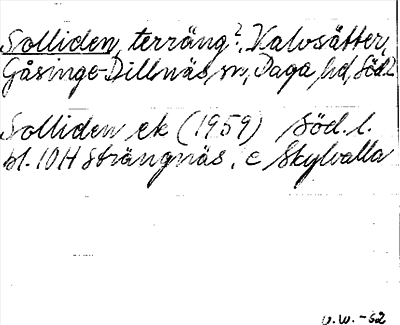 Solliden, terräng?, Kalvsätter,
Gåsinge-Dillnäs sn, Daga hd, Södl.
Solliden ek (1959) Söd.l.
bl. 10H Strängnäs, c Skylvalla
v.w.-62